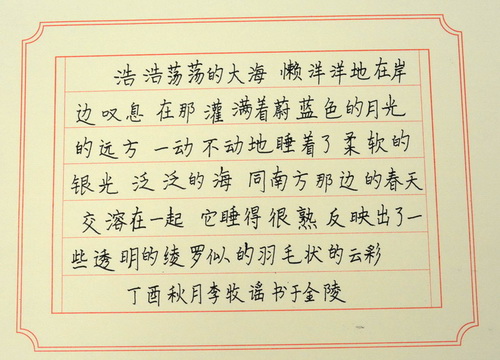 浩浩荡荡的大海 懒洋洋地在岸
边叹息 在那灌满着蔚蓝色的月光
的远方 一动不动地睡着了柔软的
银光 泛泛的海 同南方那边的春天
交溶在一起 它睡得很熟 反映出了一
些透明的绫罗似的羽毛状的云彩
丁酉秋月李牧谣书于金陵